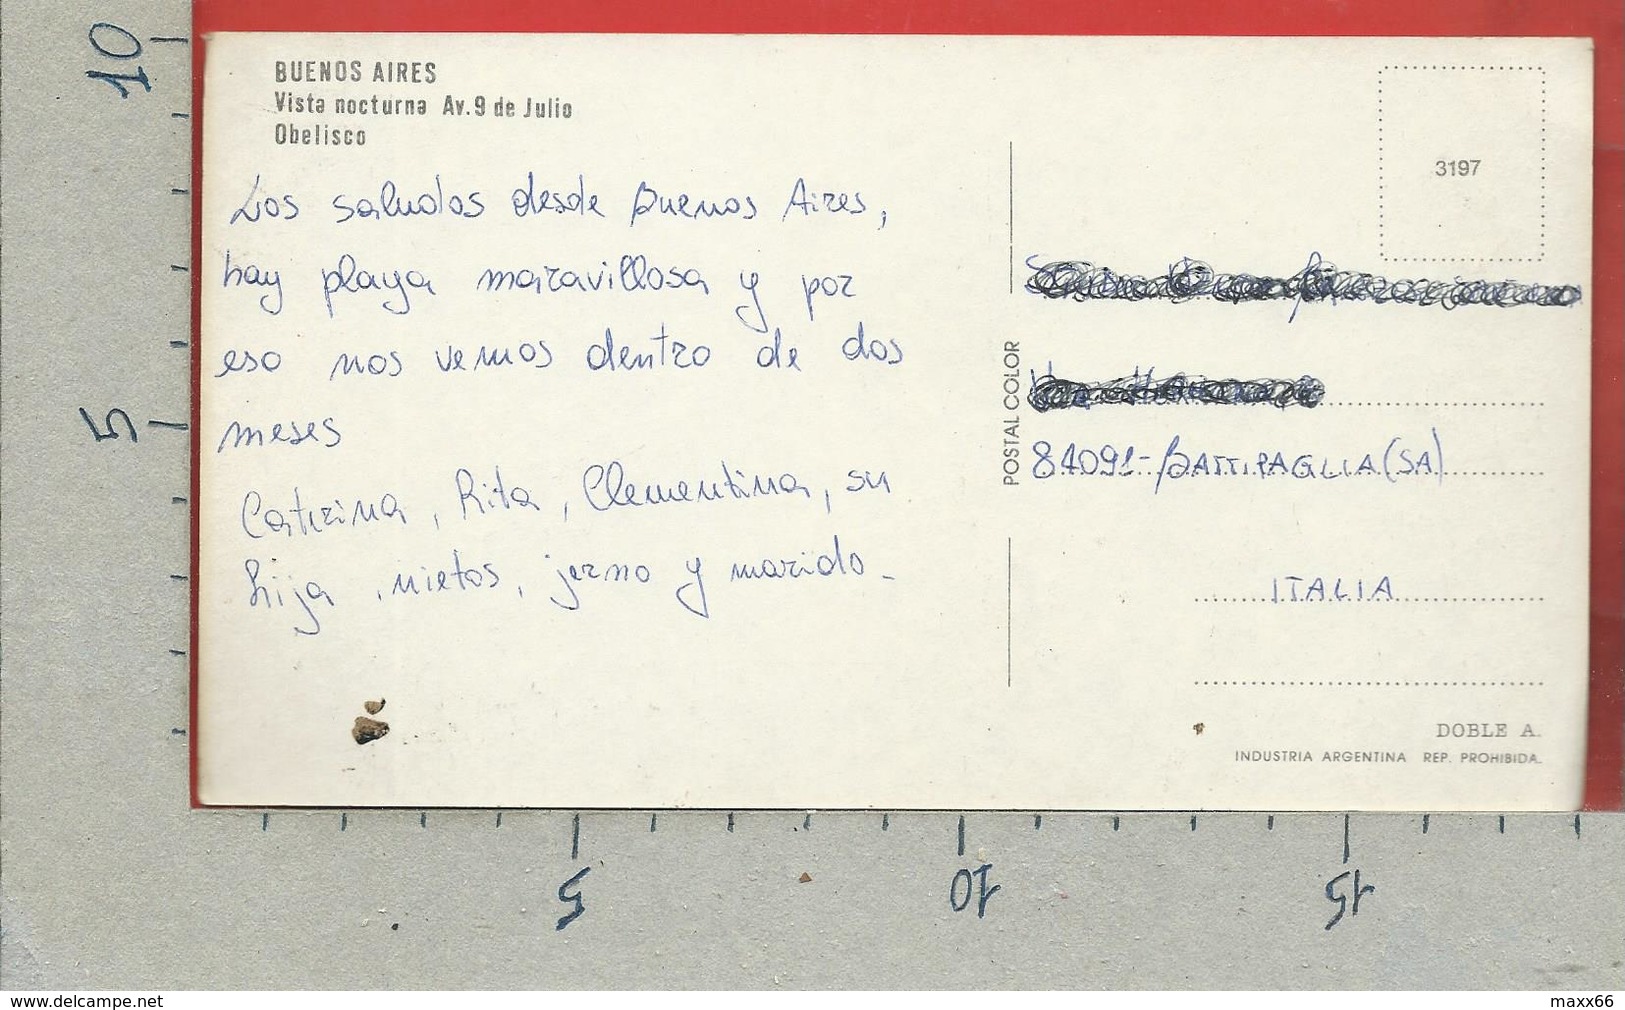 BUENOS AIRES
Vista nocturna Av. 9 de Julio
Obelisco
Los saludos desde Buenos Aires,
hay playa maravillosa y por
eso nos vemos dentro de dos
meses
Caterina, Rita, Clementina, su
hija, nietos, jerno y marido.
3197
POSTAL COLOR
84091-BATTIPAGLIA (SA)
ITALIA
DOBLE A.
INDUSTRIA ARGENTINA REP. PROHIBIDA.
10
5
5
10
15
www.delcampe.net
maxx66